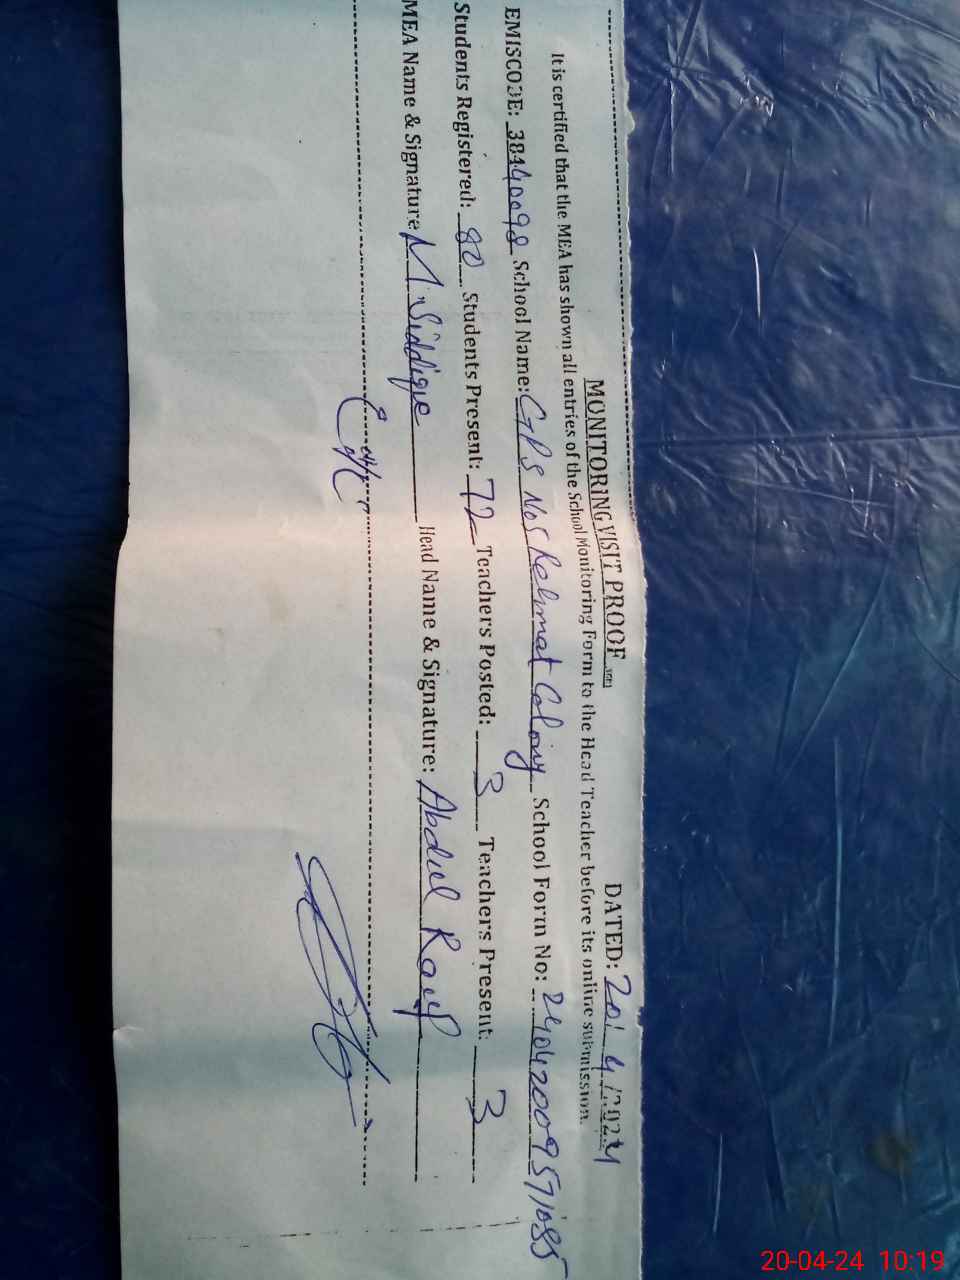 MONITORING VISIT PROOF DATED: 20/ 4 /2024
It is certified that the MEA has shown all entries of the School Monitoring Form to the Head Teacher before its online submission.
EMISCODE: 38440098 School Name: GPS No 5 Rehmat Colony School Form No: 24042009571085
Students Registered: 80 Students Present: 72 Teachers Posted: 3 Teachers Present: 3
MEA Name & Signature M. Siddique Head Name & Signature: Abdul Rauf
20-04-24 10:19